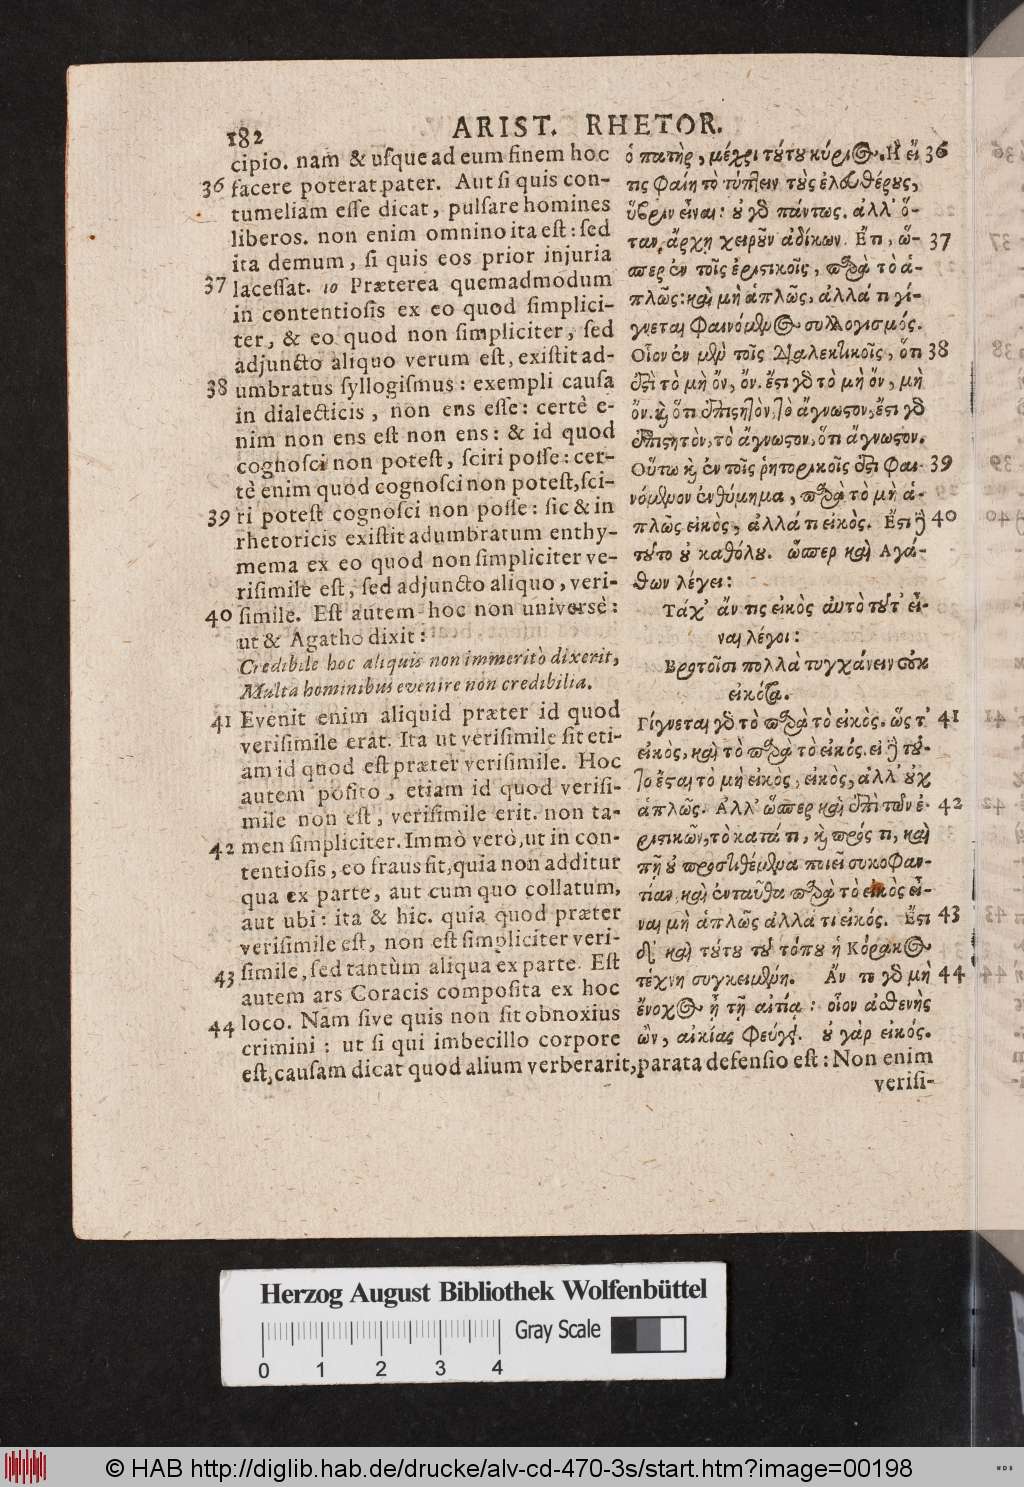 182
ARIST. RHETOR.
cipio. nam & uſque ad eum finem hoc
36 facere poterat pater. Aut ſi quis con-
tumeliam eſſe dicat, pulſare homines
liberos. non enim omnino ita eſt: ſed
ita demum, ſi quis eos prior injuria
37 laceſſat. 10 Præterea quemadmodum
in contentioſis ex eo quod ſimplici-
ter, & eo quod non ſimpliciter, ſed
adjuncto aliquo verum eſt, exiſtit ad-
38 umbratus ſyllogiſmus: exempli cauſa
in dialecticis, non ens eſſe: certè e-
nim non ens eſt non ens: & id quod
cognoſci non poteſt, ſciri poſſe: cer-
tè enim quod cognoſci non poteſt, ſci-
39 ri poteſt cognoſci non poſſe: ſic & in
rhetoricis exiſtit adumbratum enthy-
mema ex eo quod non ſimpliciter ve-
riſimile eſt, ſed adjuncto aliquo, veri-
40 ſimile. Eſt autem hoc non universè:
ut & Agatho dixit:
Credibile hoc aliquis non immeritò dixerit,
Multa hominibus evenire non credibilia.
41 Evenit enim aliquid præter id quod
veriſimile erat. Ita ut veriſimile ſit eti-
am id quod eſt præter veriſimile. Hoc
autem poſito, etiam id quod veriſi-
mile non eſt, veriſimile erit. non ta-
42 men ſimpliciter. Immò verò, ut in con-
tentioſis, eo fraus fit, quia non additur
qua ex parte, aut cum quo collatum,
aut ubi: ita & hic. quia quod præter
veriſimile eſt, non eſt ſimpliciter veri-
43 ſimile, ſed tantùm aliqua ex parte. Eſt
autem ars Coracis compoſita ex hoc
44 loco. Nam ſive quis non ſit obnoxius
crimini: ut ſi qui imbecillo corpore
eſt, cauſam dicat quod alium verberarit, parata defenſio eſt: Non enim
veriſi-
ὁ πατὴρ, μέχρι τούτου κύριος. Ἢ εἴ 36
τις φαίη τὸ τύπτειν τοὺς ἐλευθέρους,
ὕβριν εἶναι: οὐ γὰρ πάντως. ἀλλ' ὅ-
ταν ἄρχῃ χειρῶν ἀδίκων. Ἔτι, ὥ- 37
σπερ ἐν τοῖς ἐριστικοῖς, παρὰ τὸ ἁ-
πλῶς: καὶ μὴ ἁπλῶς, ἀλλά τι γί-
γνεται φαινόμενος συλλογισμός.
Οἷον ἐν μὲν τοῖς διαλεκτικοῖς, ὅτι 38
ἐστὶ τὸ μὴ ὄν, ὄν. ἔστι γὰρ τὸ μὴ ὄν, μὴ
ὄν. καὶ ὅτι ἐπιστητὸν, τὸ ἄγνωστον, ἔστι γὰρ
ἐπιστητὸν, τὸ ἄγνωστον, ὅτι ἄγνωστον.
Οὕτω καὶ ἐν τοῖς ῥητορικοῖς ἐστι φαι- 39
νόμενον ἐνθύμημα, παρὰ τὸ μὴ ἁ-
πλῶς εἰκὸς, ἀλλά τι εἰκός. Ἔστι δὲ 40
τοῦτο οὐ καθόλου. ὥσπερ καὶ Ἀγά-
θων λέγει:
Τάχ' ἄν τις εἰκὸς αὐτὸ τοῦτ' εἶ-
ναι λέγοι:
Βροτοῖσι πολλὰ τυγχάνειν οὐκ
εἰκότα.
Γίγνεται γὰρ τὸ παρὰ τὸ εἰκὸς. ὥς τ' 41
εἰκὸς, καὶ τὸ παρὰ τὸ εἰκός. εἰ δὲ τοῦ-
το ἔσται τὸ μὴ εἰκὸς, εἰκὸς, ἀλλ' οὐχ
ἁπλῶς. Ἀλλ' ὥσπερ καὶ ἐπὶ τῶν ἐ- 42
ριστικῶν, τὸ κατά τι, καὶ πρός τι, καὶ
πῆ οὐ προστιθέμενα ποιεῖ συκοφαν-
τίαν. καὶ ἐνταῦθα παρὰ τὸ εἰκὸς εἶ-
ναι μὴ ἁπλῶς ἀλλά τι εἰκός. Ἔστι 43
δ' καὶ τούτου τοῦ τόπου ἡ Κόρακος
τέχνη συγκειμένη. Ἄν τε γὰρ μὴ 44
ἔνοχος ᾖ τῇ αἰτίᾳ: οἷον ἀσθενὴς
ὢν, αἰκίας φεύγει. οὐ γὰρ εἰκός.
Herzog August Bibliothek Wolfenbüttel
Gray Scale
0 1 2 3 4
© HAB http://diglib.hab.de/drucke/alv-cd-470-3s/start.htm?image=00198